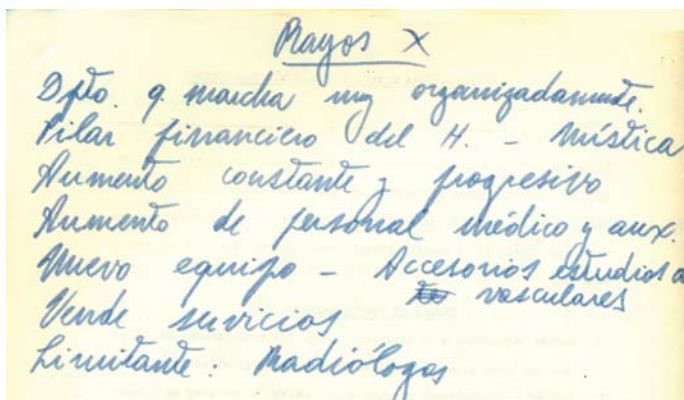 Rayos X
Dpto. q. marcha muy organizadamente.
Pilar financiero del H. - Mística
Aumento constante y progresivo
Aumento de personal médico y aux.
Nuevo equipo - Accesorios estudios
vasculares
Vende servicios
Limitante: Radiólogos